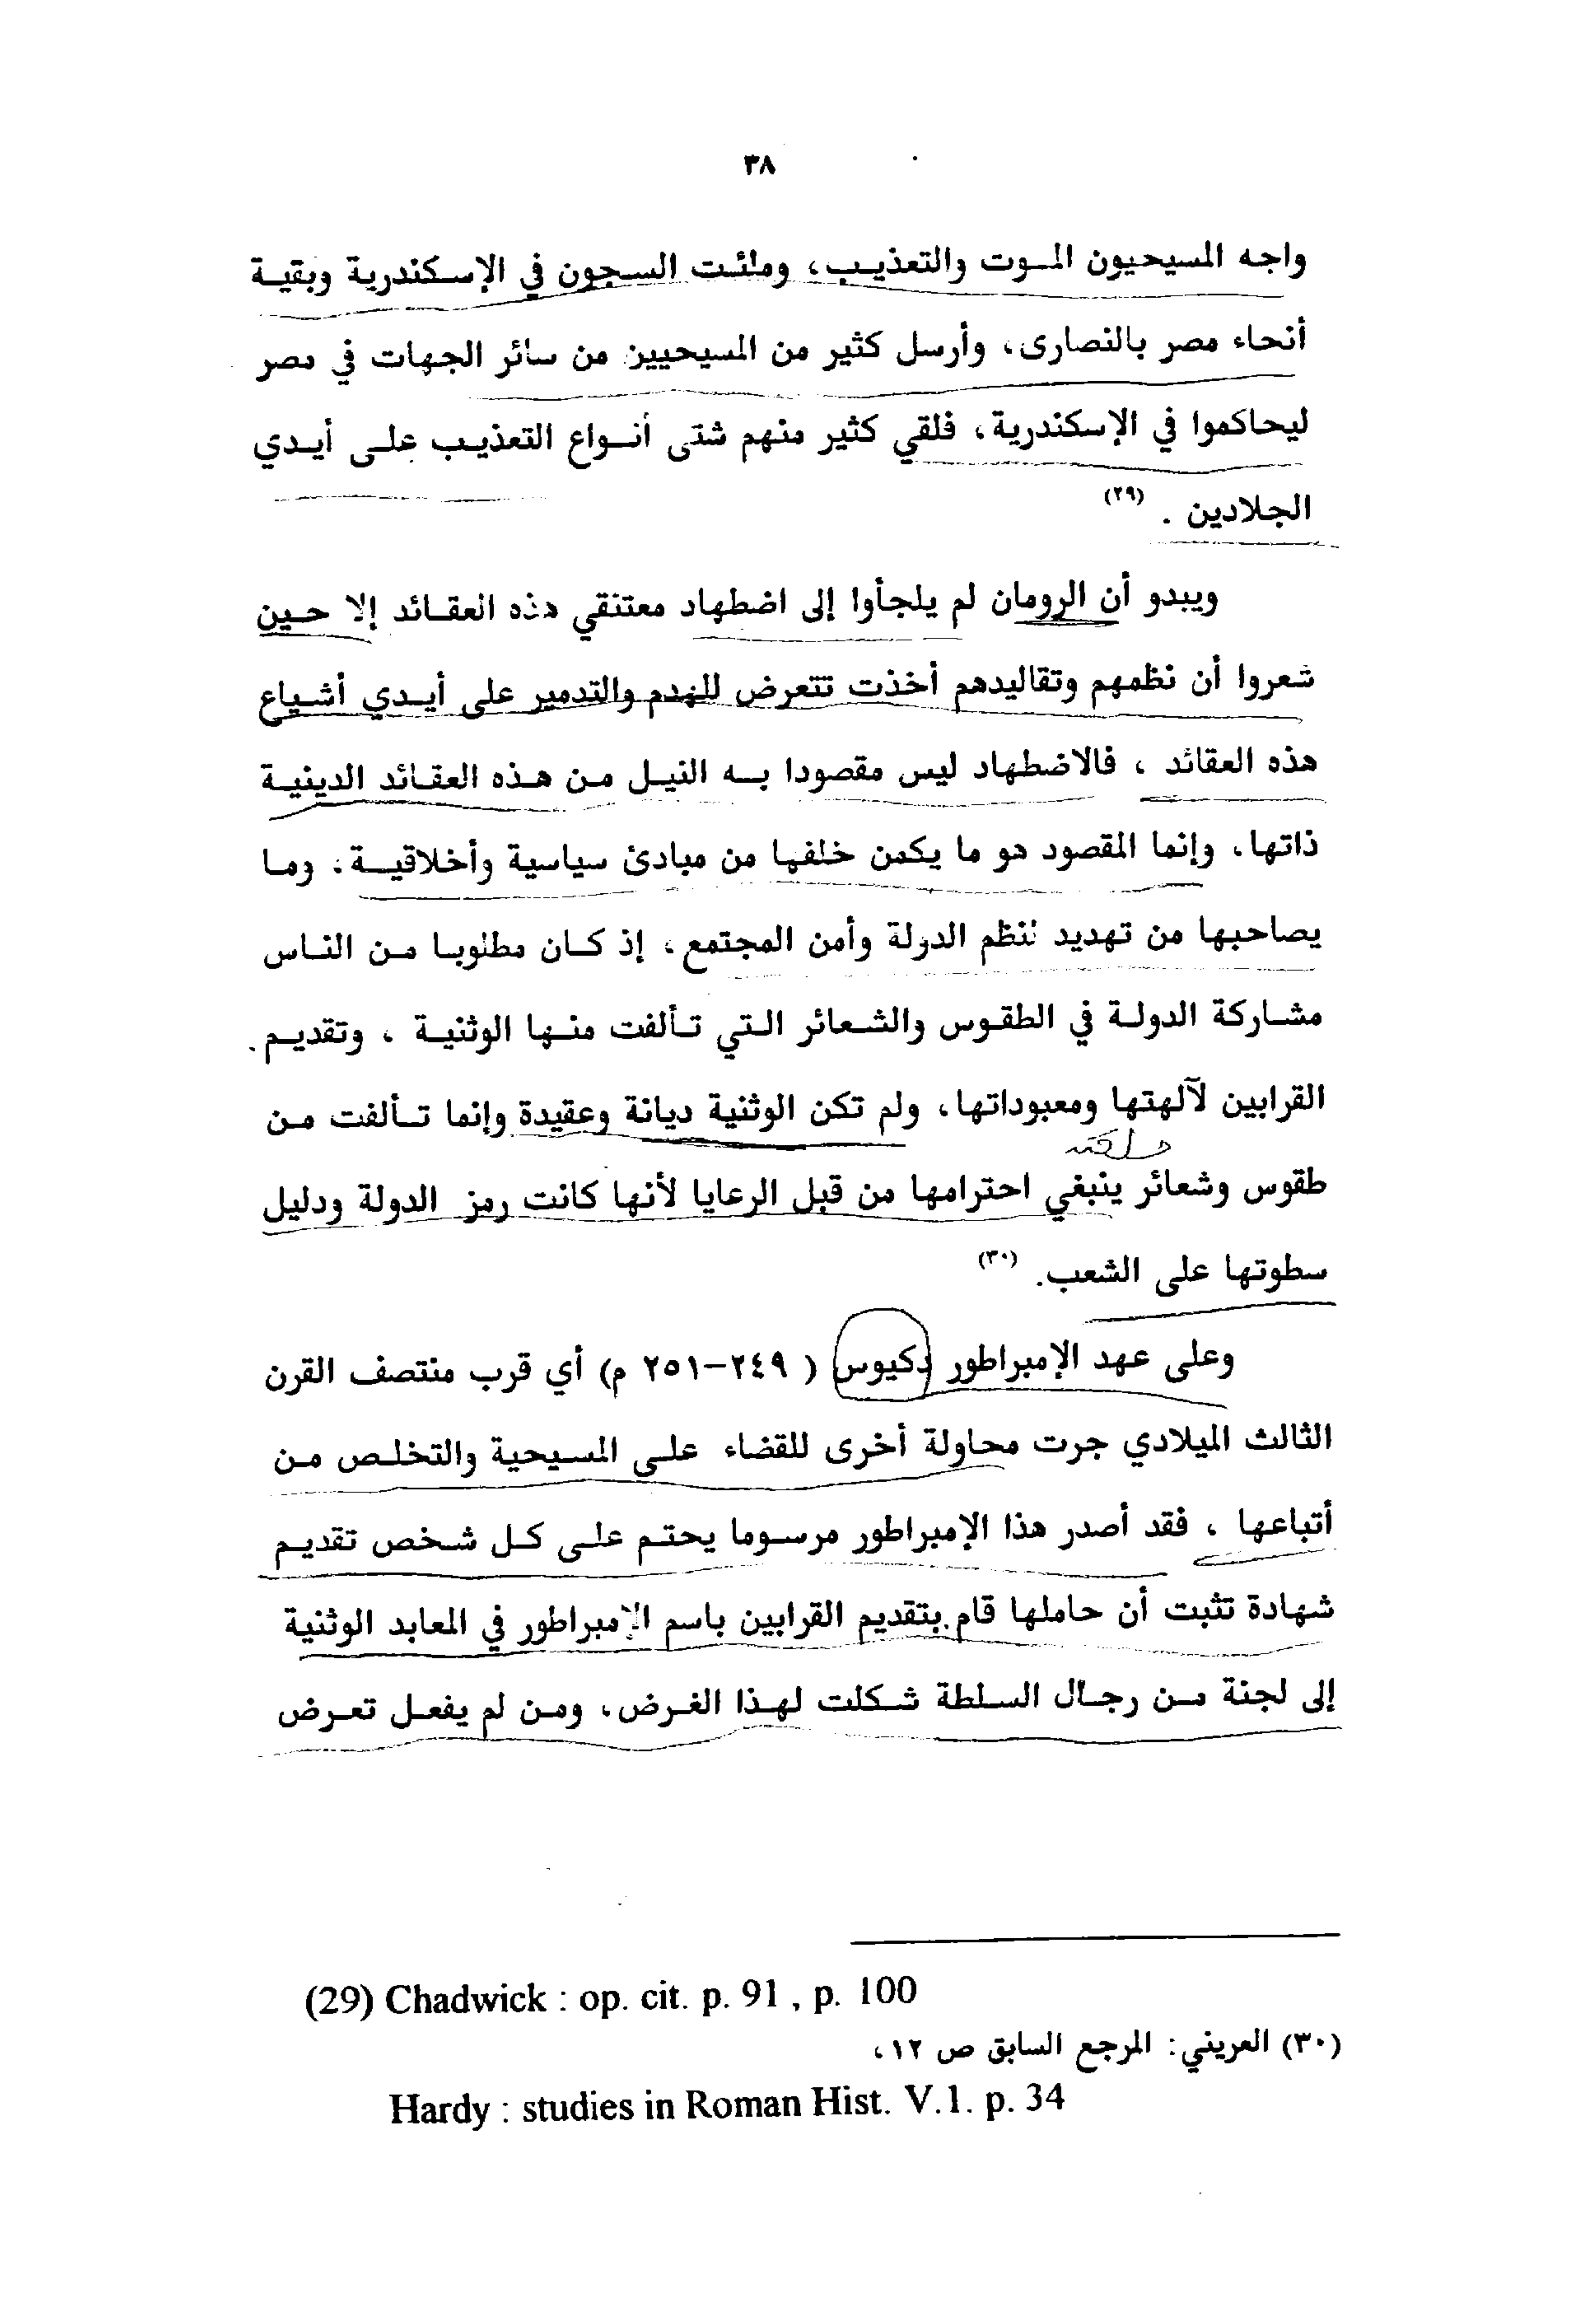 ٣٨
واجه المسيحيون الموت والتعذيب، وملئت السجون في الإسكندرية وبقية
أنحاء مصر بالنصارى، وأرسل كثير من المسيحيين من سائر الجهات في مصر
ليحاكموا في الإسكندرية، فلقي كثير منهم شتى أنواع التعذيب على أيدي
الجلادين . (٢٩)
ويبدو أن الرومان لم يلجأوا إلى اضطهاد معتنقي هذه العقائد إلا حين
شعروا أن نظمهم وتقاليدهم أخذت تتعرض للهدم والتدمير على أيدي أشياع
هذه العقائد ، فالاضطهاد ليس مقصودا به النيل من هذه العقائد الدينية
ذاتها، وإنما المقصود هو ما يكمن خلفها من مبادئ سياسية وأخلاقية، وما
يصاحبها من تهديد لنظم الدولة وأمن المجتمع، إذ كان مطلوبا من الناس
مشاركة الدولة في الطقوس والشعائر التي تألفت منها الوثنية ، وتقديم
القرابين لآلهتها ومعبوداتها، ولم تكن الوثنية ديانة وعقيدة وإنما تألفت من
طقوس وشعائر ينبغي احترامها من قبل الرعايا لأنها كانت رمز الدولة ودليل
سطوتها على الشعب. (٣٠)
وعلى عهد الإمبراطور دكيوس ( ٢٤٩-٢٥١ م) أي قرب منتصف القرن
الثالث الميلادي جرت محاولة أخرى للقضاء على المسيحية والتخلص من
أتباعها ، فقد أصدر هذا الإمبراطور مرسوما يحتم على كل شخص تقديم
شهادة تثبت أن حاملها قام بتقديم القرابين باسم الإمبراطور في المعابد الوثنية
إلى لجنة من رجال السلطة شكلت لهذا الغرض، ومن لم يفعل تعرض
(29) Chadwick : op. cit. p. 91 , p. 100
(٣٠) العريني: المرجع السابق ص ١٢،
Hardy : studies in Roman Hist. V.1. p. 34